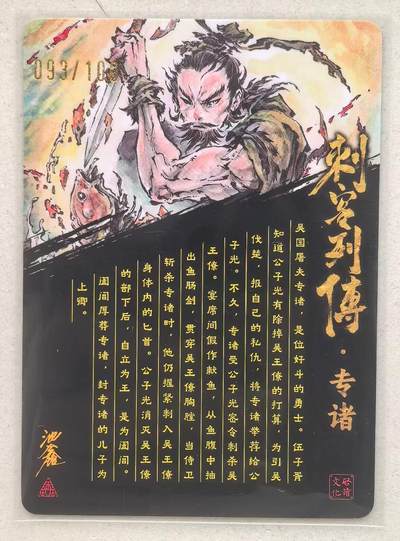 093/108
刺客列傳·专诸
吴国屠夫专诸,是位好斗的勇士。伍子胥
知道公子光有除掉吴王僚的打算,为引吴
伐楚,报自己的私仇,将专诸举荐给公
子光。不久,专诸受公子光密令刺杀吴
王僚。宴席间假作献鱼,从鱼腹中抽
出鱼肠剑,贯穿吴王僚胸膛,当侍卫
斩杀专诸时,他仍握紧刺入吴王僚
身体内的匕首。公子光消灭吴王僚
的部下后,自立为王,是为阖闾。
阖闾厚葬专诸,封专诸的儿子为
上卿。